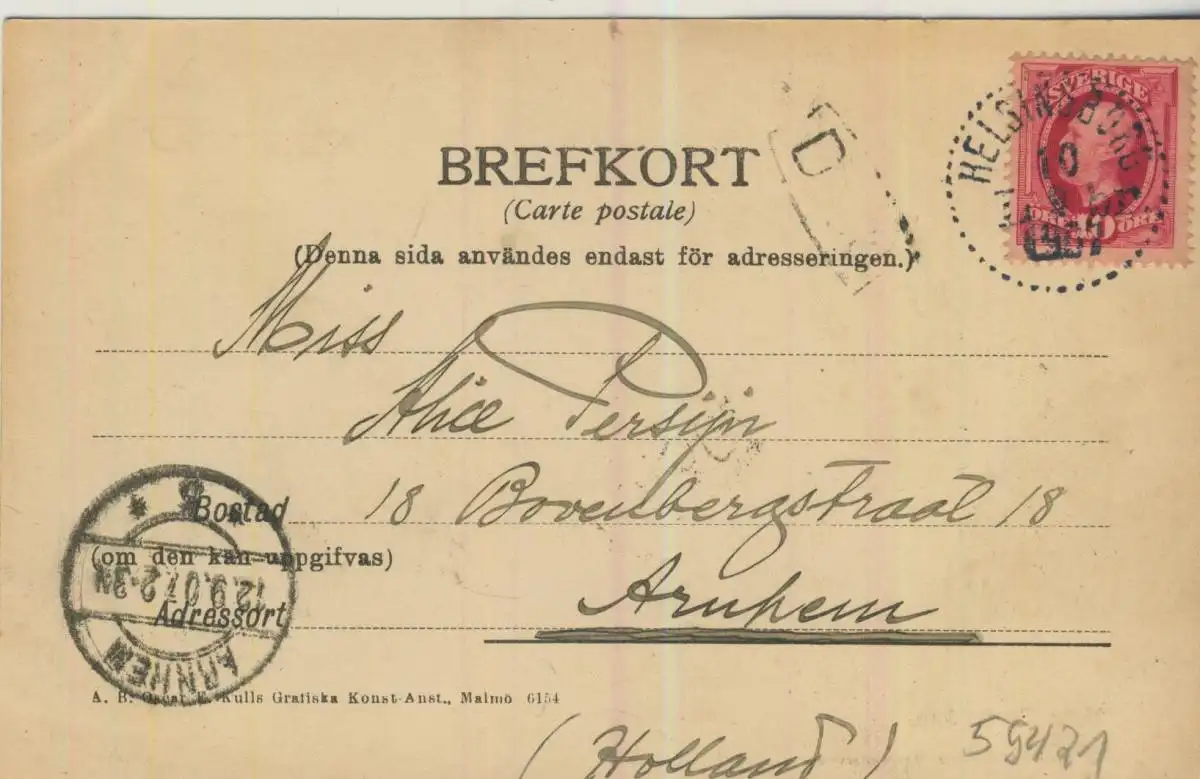 BREFKORT
(Carte postale)
(Denna sida användes endast för adresseringen.)
SVERIGE
ÖRE 10 ÖRE
HELSINGBORG
10
1907
D
Miss
Alice Persijn
Bostad 18 Bovenbergstraat 18
(om den kan uppgifvas)
Adressort Arnhem
12.9.07.2-3N
ARNHEM
A. B. Oscar E. Kulls Grafiska Konst-Anst., Malmö 6154
(Holland)
59421